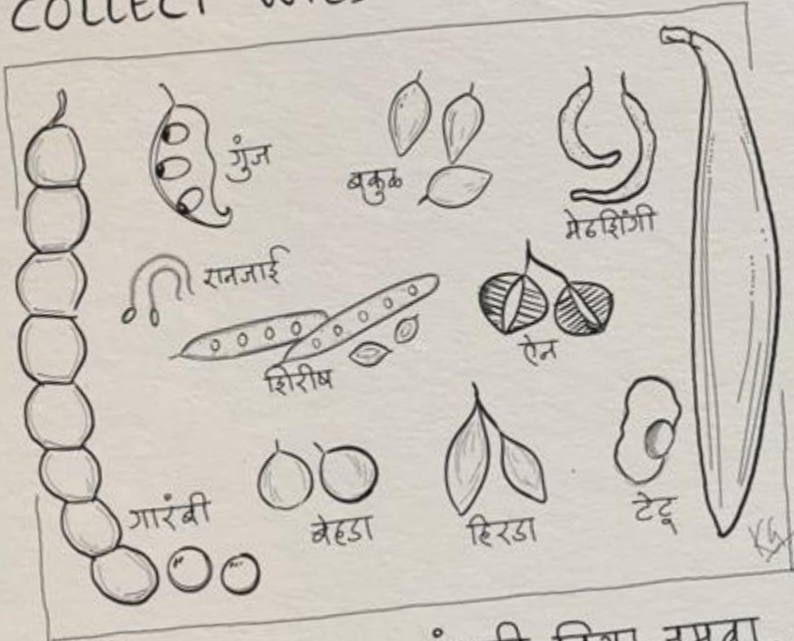 COLLECT
गुंज
बकुळ
मेढशिंगी
रानजाई
शिरीष
ऐन
गारंबी
बेहडा
हिरडा
टेटू